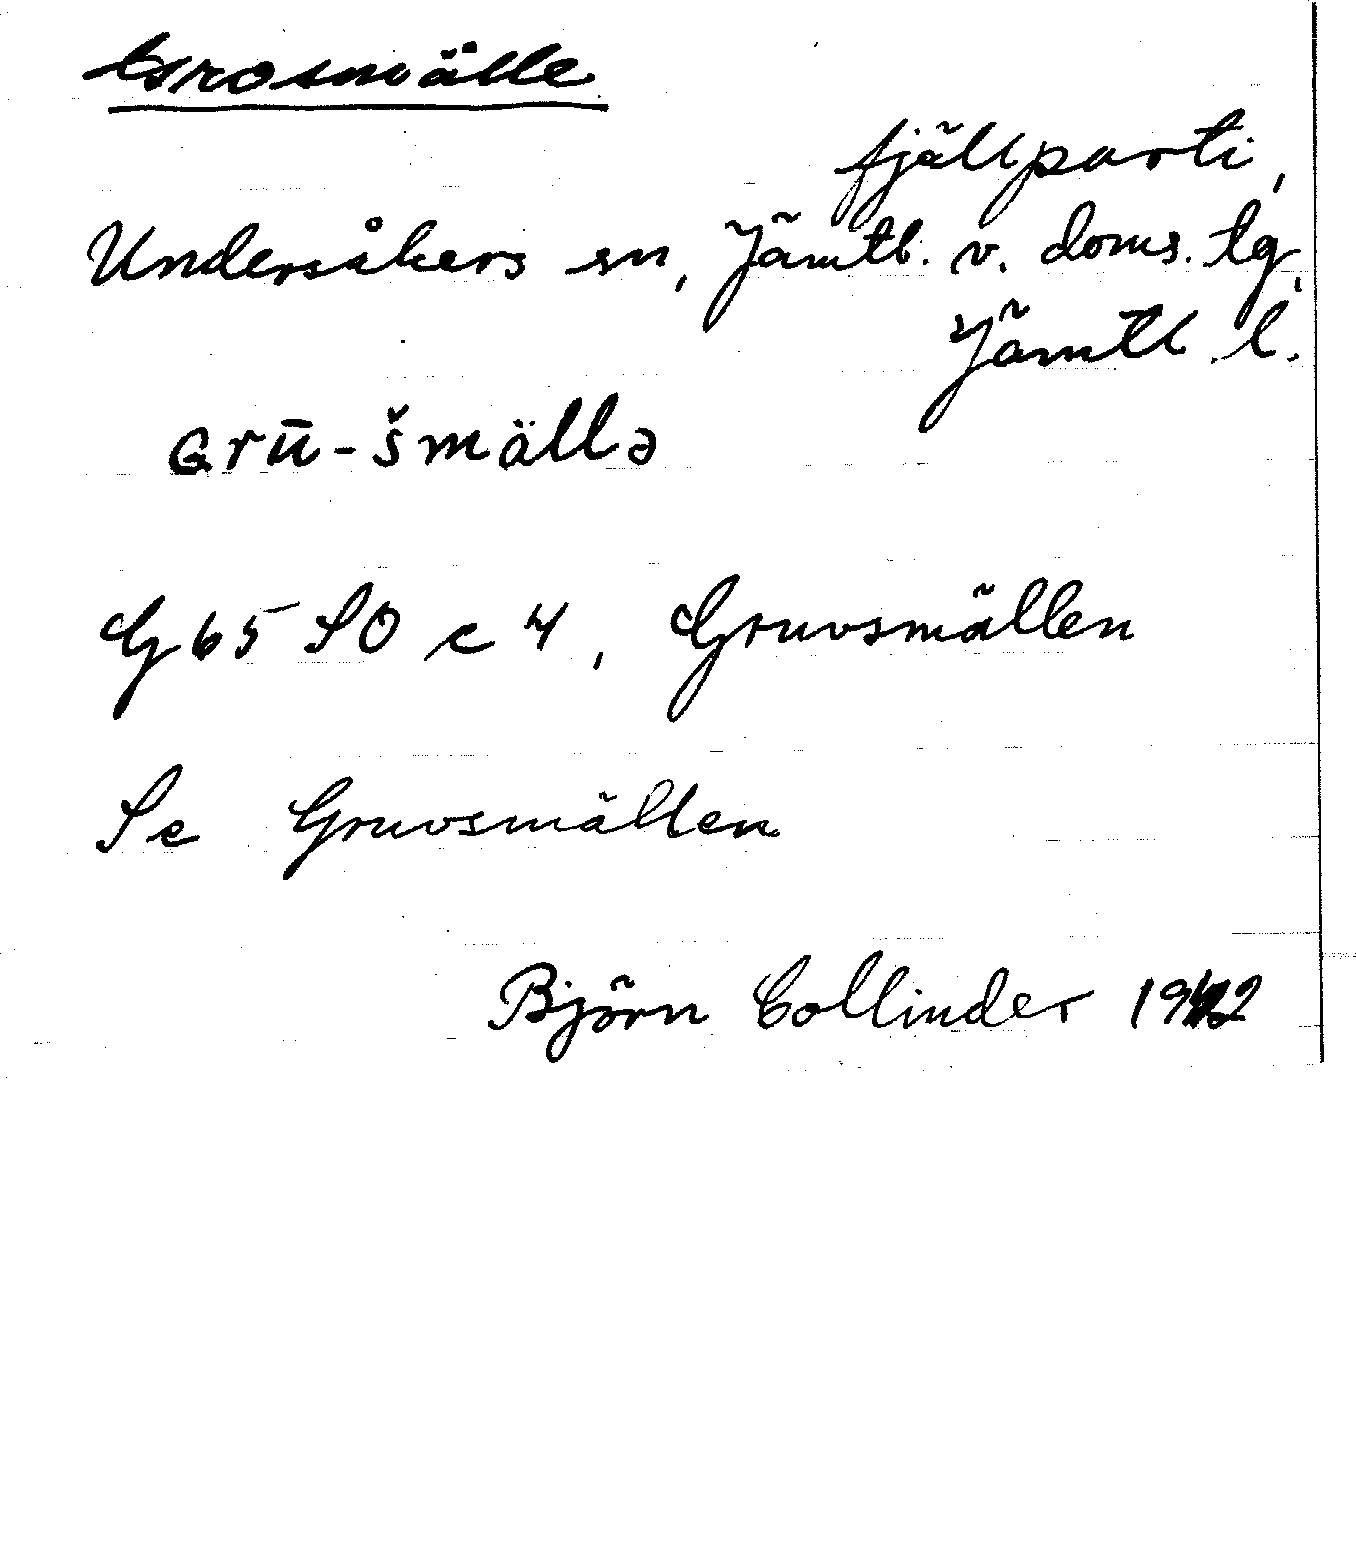 Grosmälle
fjällparti,
Undersåkers sn, Jämtl. v. doms. tg,
Jämtl. l.
Grū-šmällə
G 65 SO c 4, Gruvsmällen
Se Gruvsmällen
Björn Collinder 1942